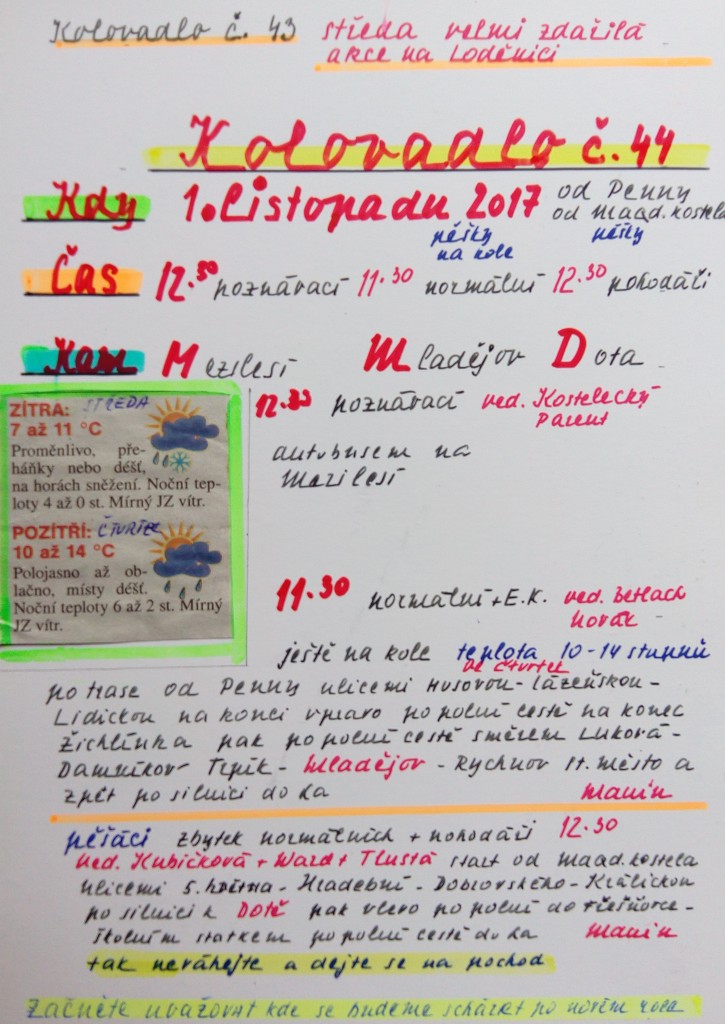 Kolovadlo č. 43 středa velmi zdařilá
akce na Loděnici
Kolovadlo č. 44
Kdy 1. Listopadu 2017 od Penny
od Magd. kostela
pěšky pěšky
na kole
Čas 12.30 poznávací 11.30 normální 12.30 pohodáči
Kam Mezilesí Mladějov Dota
ZÍTRA: STŘEDA
7 až 11 °C
Proměnlivo, pře-
háňky nebo déšť,
na horách sněžení. Noční tep-
loty 4 až 0 st. Mírný JZ vítr.
POZÍTŘÍ: ČTVRTEK
10 až 14 °C
Polojasno až ob-
lačno, místy déšť.
Noční teploty 6 až 2 st. Mírný
JZ vítr.
12.30 poznávací ved. Kostelecký
Parent
autobusem na
Mezilesí
11.30 normální + E.K. ved. Betlach
Novák
ještě na kole teplota 10-14 stupňů
ve čtvrtek
po trase od Penny ulicemi Husovou - Lázeňskou -
Lidickou na konci vpravo po polní cestě na konec
Žichlínka pak po polní cestě směrem Luková -
Damníkov Trpík - Mladějov - Rychnov st. město a
zpět po silnici do La Manin
pěšáci zbytek normálních + pohodáči 12.30
ved. Kubíčková + Ward + Tlustá start od Magd. kostela
ulicemi 5. května - Hradební - Dobrovského - Králickou
po silnici k Dotě pak vlevo po polní do Třešňovce -
školním statkem po polní cestě do La Manin
tak neváhejte a dejte se na pochod
Začněte uvažovat kde se budeme scházet po novém roce